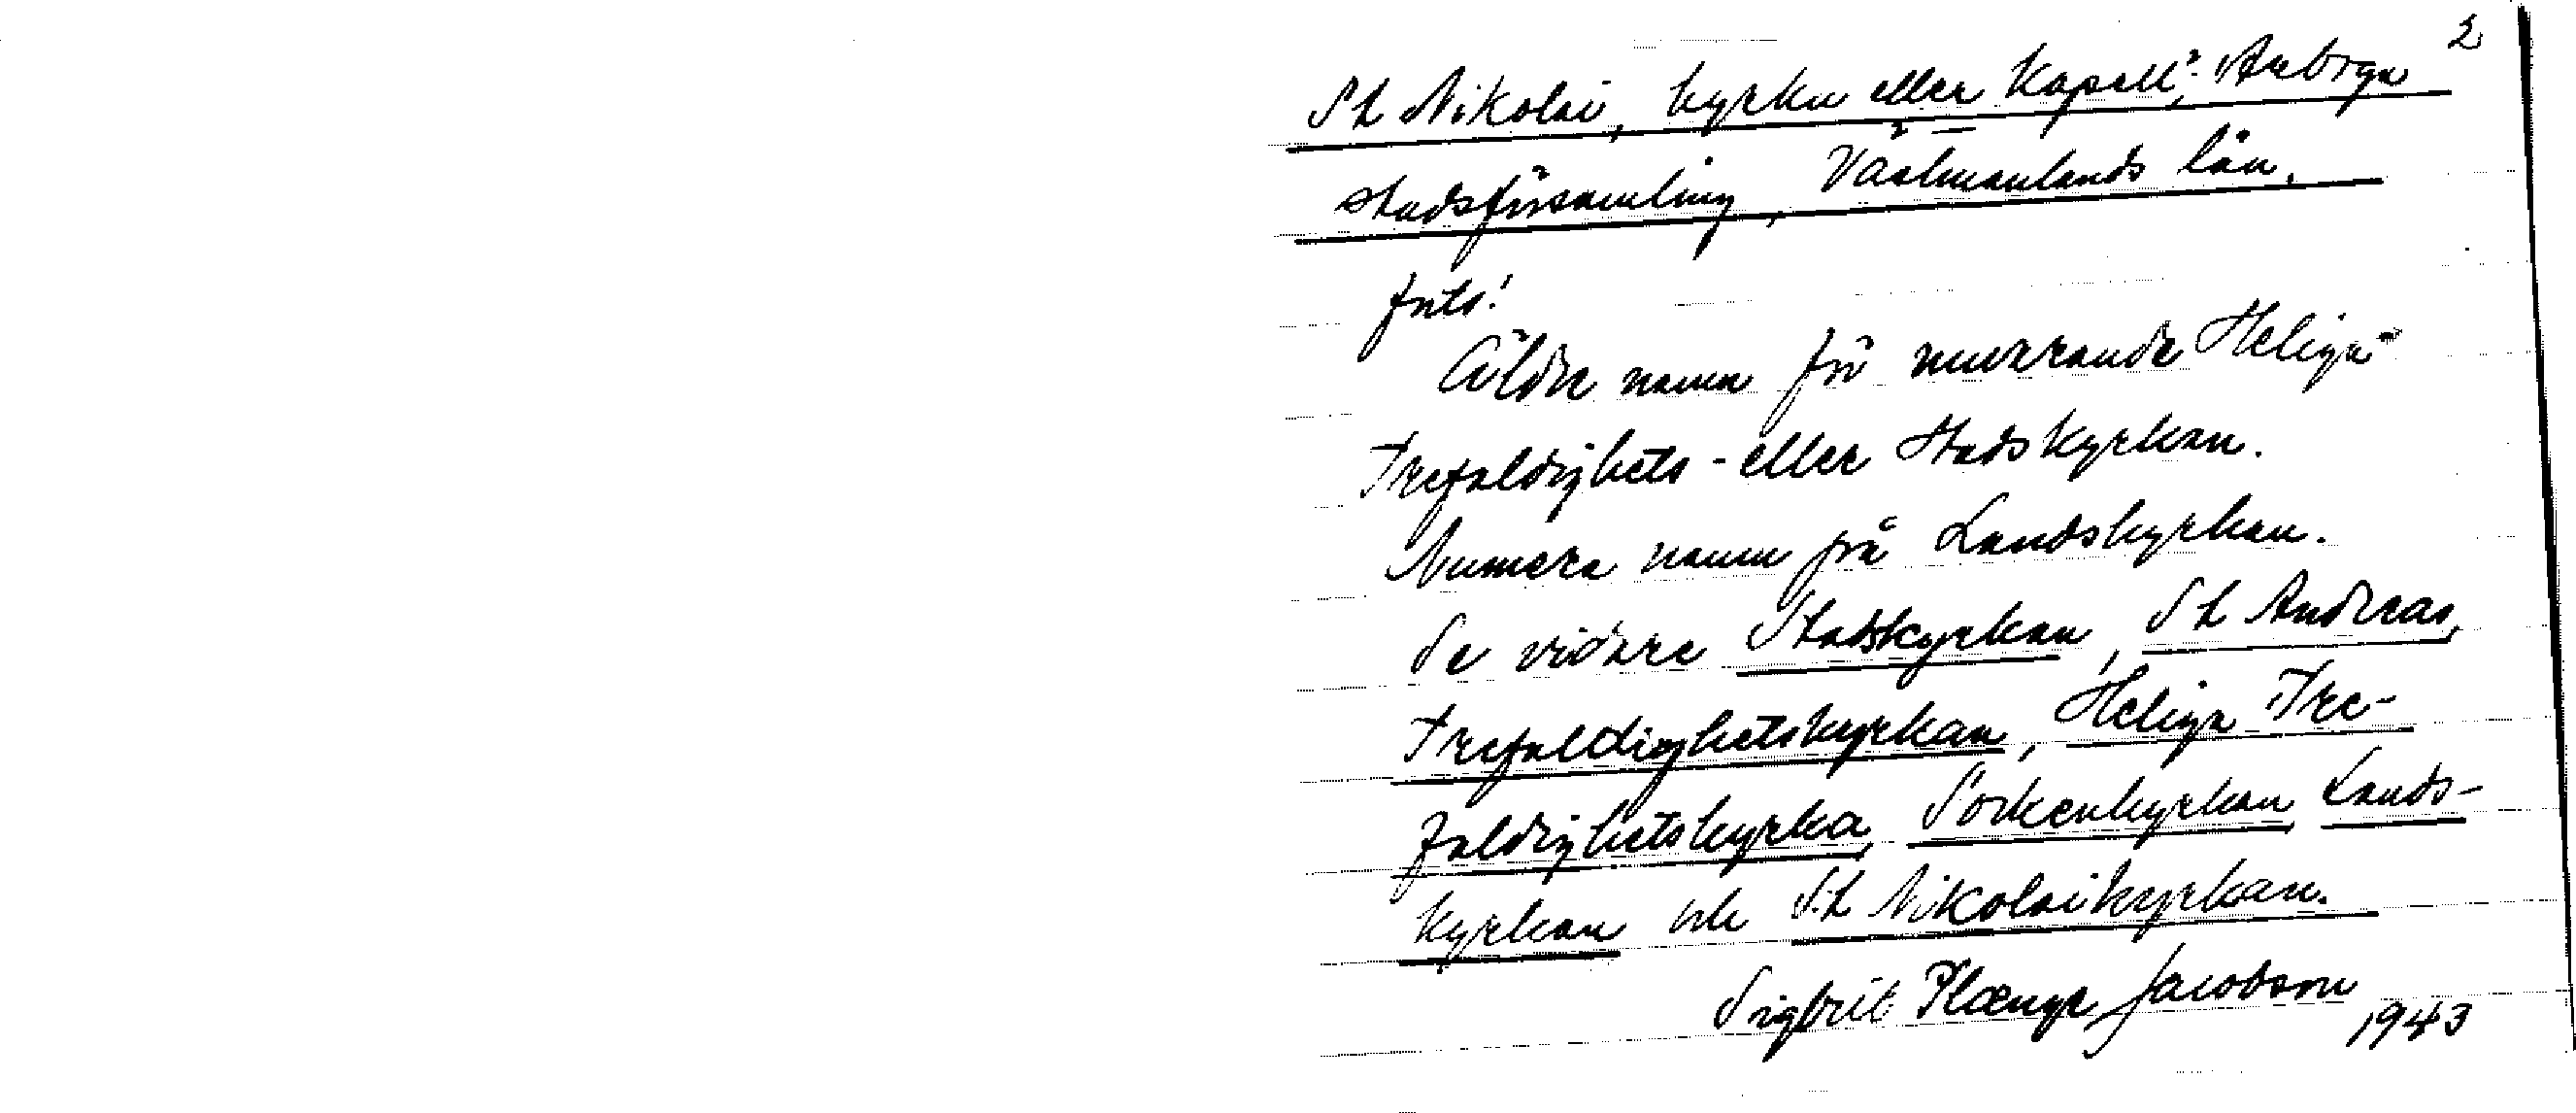 2
St Nikolai, kyrka eller Kapell?, Arboga
stadsförsamling, Västmanlands län.
forts!
Äldre namn för nuvarande Heliga
Trefaldighets- eller Stadskyrkan.
Numera namn på Landskyrkan.
Se vidare Stadskyrkan, St Andreas,
Trefaldighetskyrkan, Heliga Tre-
faldighetskyrka, Sockenkyrkan, Lands-
kyrkan och St Nikolaikyrkan.
Sigbrit Plænge Jacobson
1943